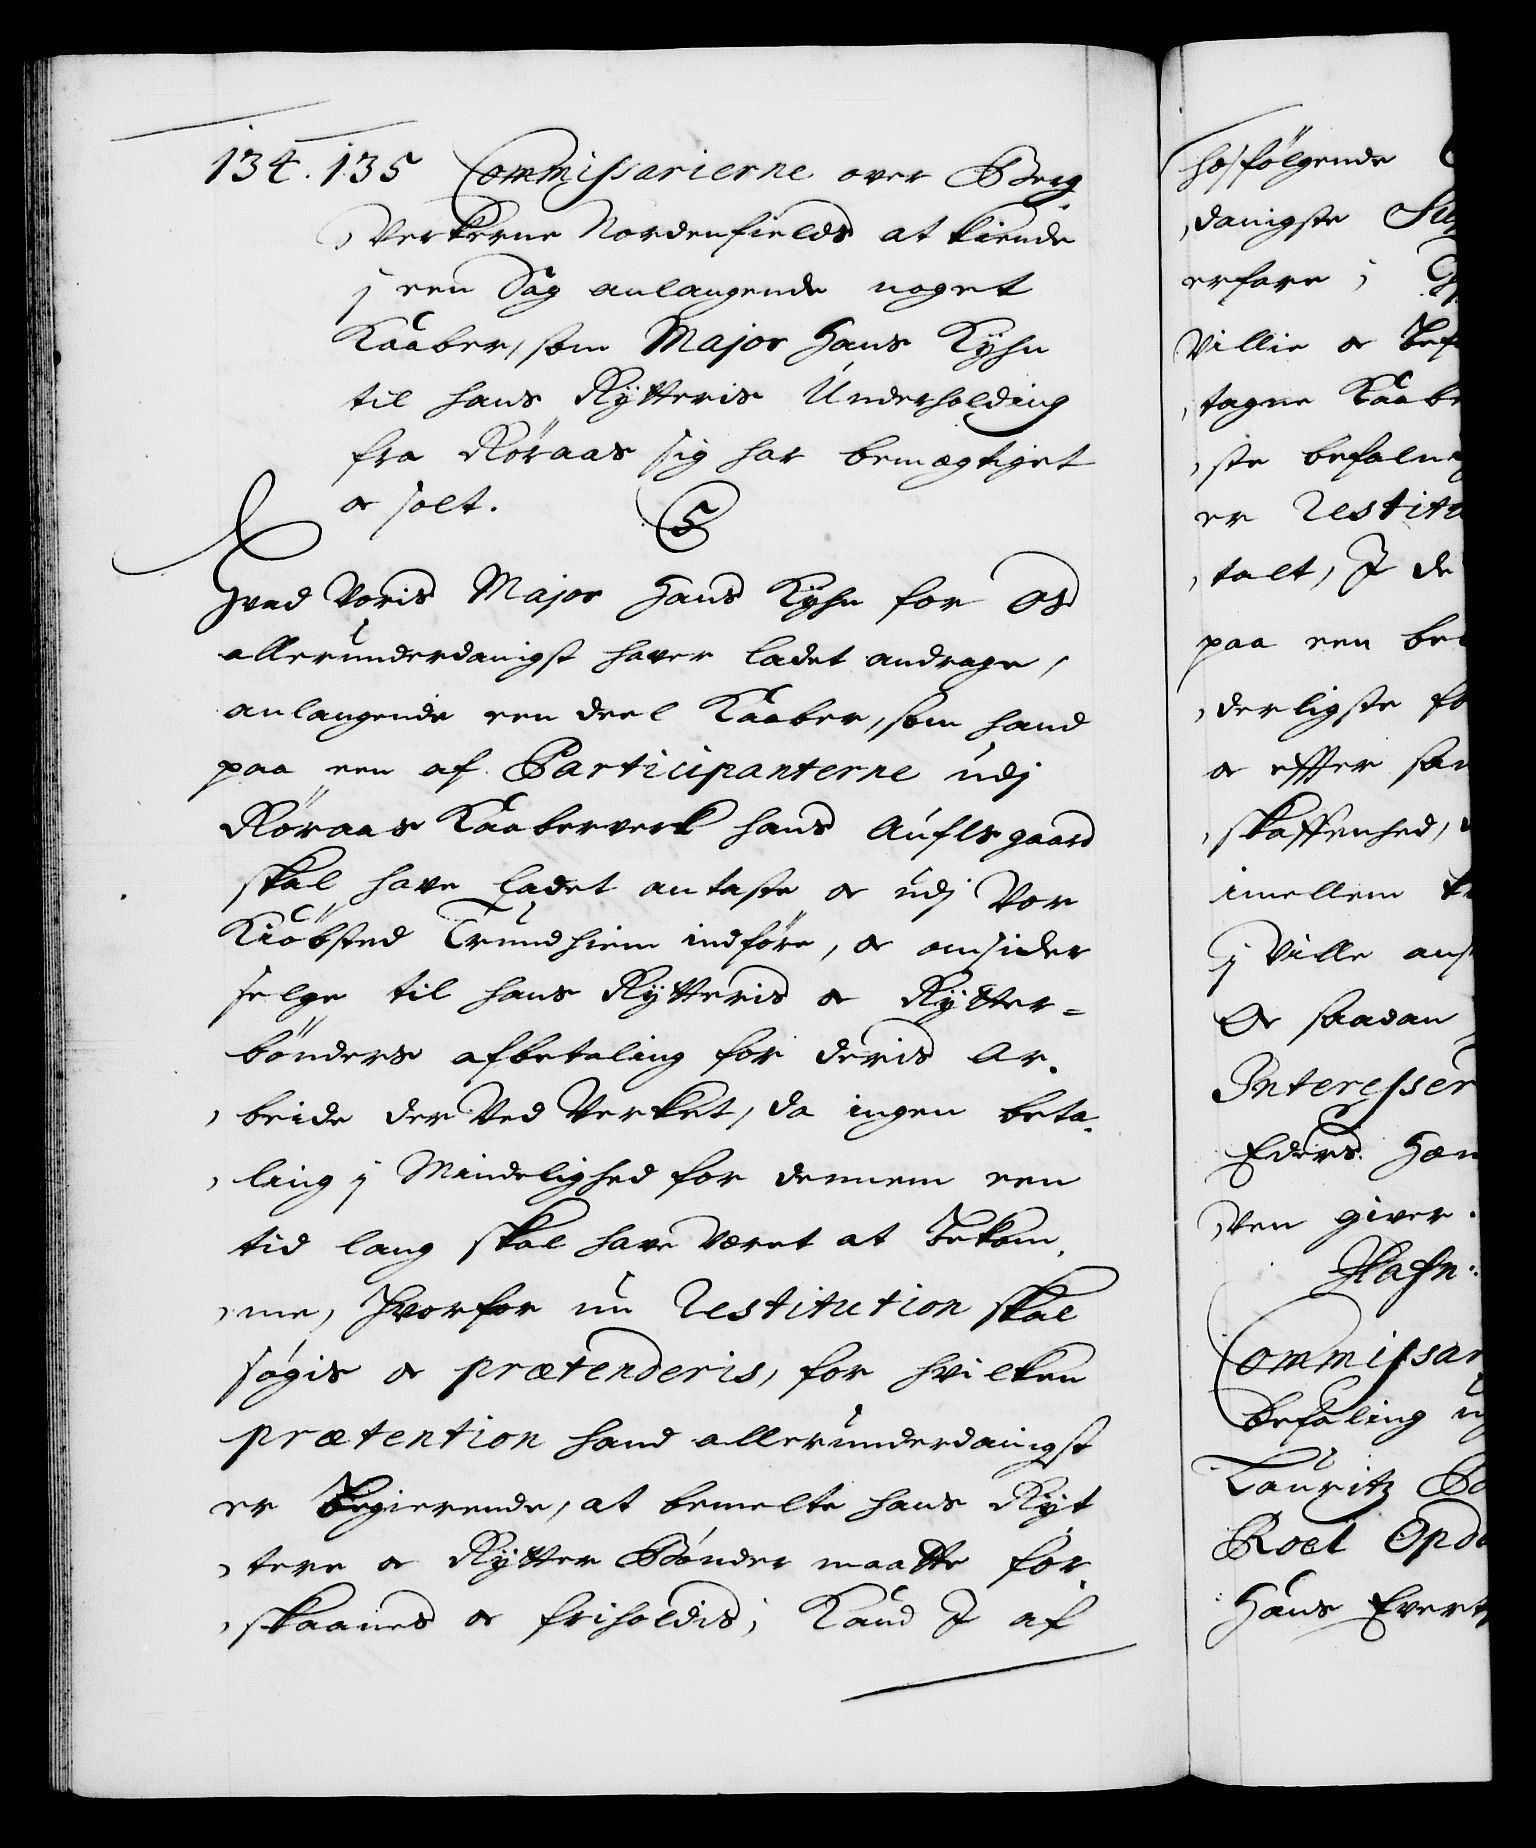 134. 135 Commissarierne over Berg
verkerne Nordenfields at kiende
j een Sag anlangende noget
Kaaber, som Major Hans Kÿhn
til hans Rÿtteris Underholding
fra Röraas sig har bemægtiget
oc solt.
C5
Hvad Voris Major Hans Kÿhn for Os
allerunderdanigst haver ladet andrage,
anlangende een deel Kaaber, som hand
paa een af Participanterne udj
Röraas Kaaberverk hans
skal have ladet antaste oc udj Vor
Kiöbsted Trundhiem indföre, oc omsider
selge til hans Rÿtteris oc Rÿtter=
bönders afbetaling for deris Ar,
,beide der Ved Verket, da ingen beta,
,ling j Mindelighed for dennem een
tid lang skal have været at bekom,
,me, Hvorfor nu Restitution skal
søgis oc prætenderis, for hvilken
prætention hand allerunderdanigst
er Begierende, at bemelte hans Rÿt
,tere oc Rÿtter Bönder maatte for,
,skaanes oc friholdis; Kand I af
hosfölgende
,danigste
erfare;
Villie oc
,tagne
,ste
er
,talt, I de
paa een
,derligste
oc effter
,skaffenhed,
imellem
j Ville
Oc saadan
Eders
,ven giver.
Hafn:
Lauritz
Roel
Hans